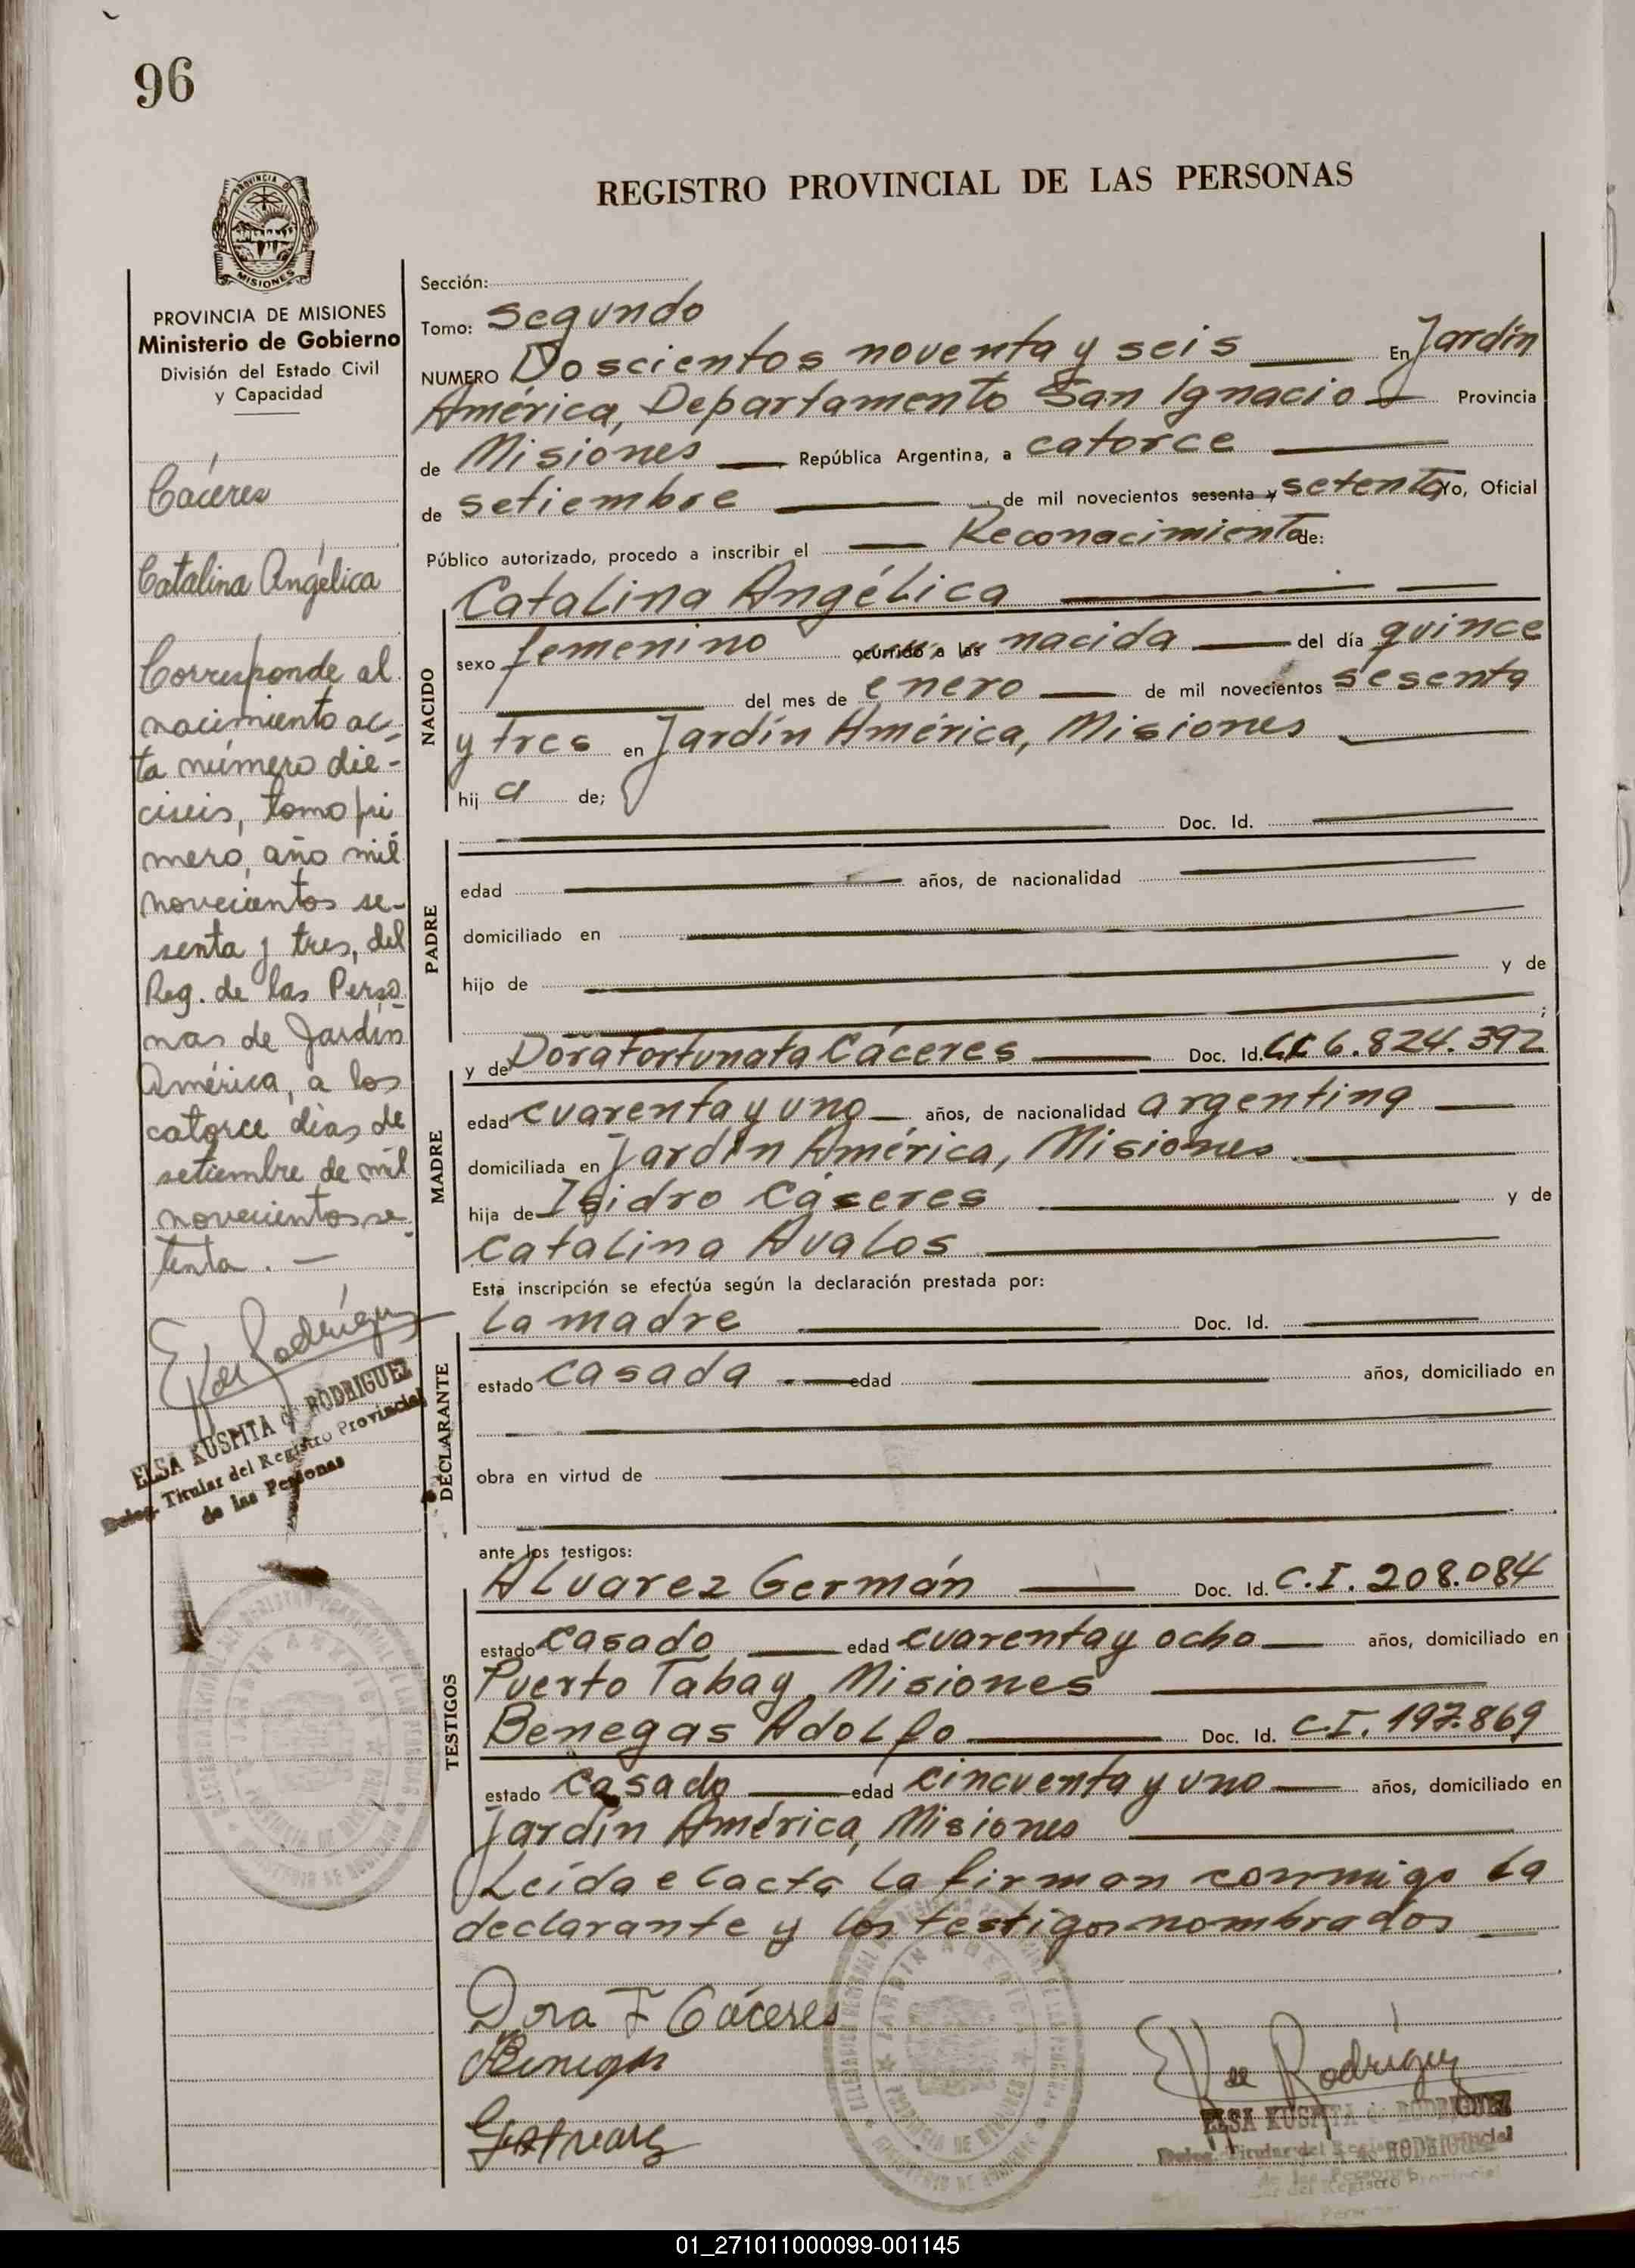 96
REGISTRO PROVINCIAL DE LAS PERSONAS
PROVINCIA DE MISIONES
Ministerio de Gobierno
División del Estado Civil
y Capacidad
Cáceres
Catalina Angélica
Corresponde al
nacimiento ac-
ta número die-
ciseis, tomo pri
mero, año mil
novecientos se-
senta y tres, del
Reg. de las Perso-
nas de Jardín
América, a los
catorce días de
setiembre de mil
novecientos se-
tenta. —
E K de Rodríguez
ELSA KUSPITA de RODRIGUEZ
Deleg. Titular del Registro Provincial
de las Personas
Sección:
Tomo: Segundo
NUMERO Doscientos noventa y seis En Jardín
América, Departamento San Ignacio Provincia
de Misiones República Argentina, a catorce
de setiembre de mil novecientos sesenta y setenta Yo, Oficial
Público autorizado, procedo a inscribir el Reconocimiento de:
Catalina Angélica
NACIDO
sexo femenino ocurrido a las nacida del día quince
del mes de enero de mil novecientos sesenta
y tres en Jardín América, Misiones
hij a de;
Doc. Id.
PADRE
edad años, de nacionalidad
domiciliado en
hijo de y de
;
y de Dora Fortunata Cáceres Doc. Id. 6.824.392
MADRE
edad cuarenta y uno años, de nacionalidad argentina
domiciliada en Jardín América, Misiones
hija de Isidro Cáceres y de
Catalina Avalos
Esta inscripción se efectúa según la declaración prestada por:
La madre Doc. Id.
DECLARANTE
estado casada edad años, domiciliado en
obra en virtud de
ante los testigos:
Alvarez Germán Doc. Id. C.I. 208.084
TESTIGOS
estado casado edad cuarenta y ocho años, domiciliado en
Puerto Tabay, Misiones
Benegas Adolfo Doc. Id. C.I. 197.869
estado casado edad cincuenta y uno años, domiciliado en
Jardín América, Misiones
Leída el acta la firman conmigo la
declarante y los testigos nombrados
Dora F Cáceres
Benegas
E K de Rodríguez
ELSA KUSPITA de RODRIGUEZ
Deleg. Titular del Registro Provincial
01_271011000099-001145